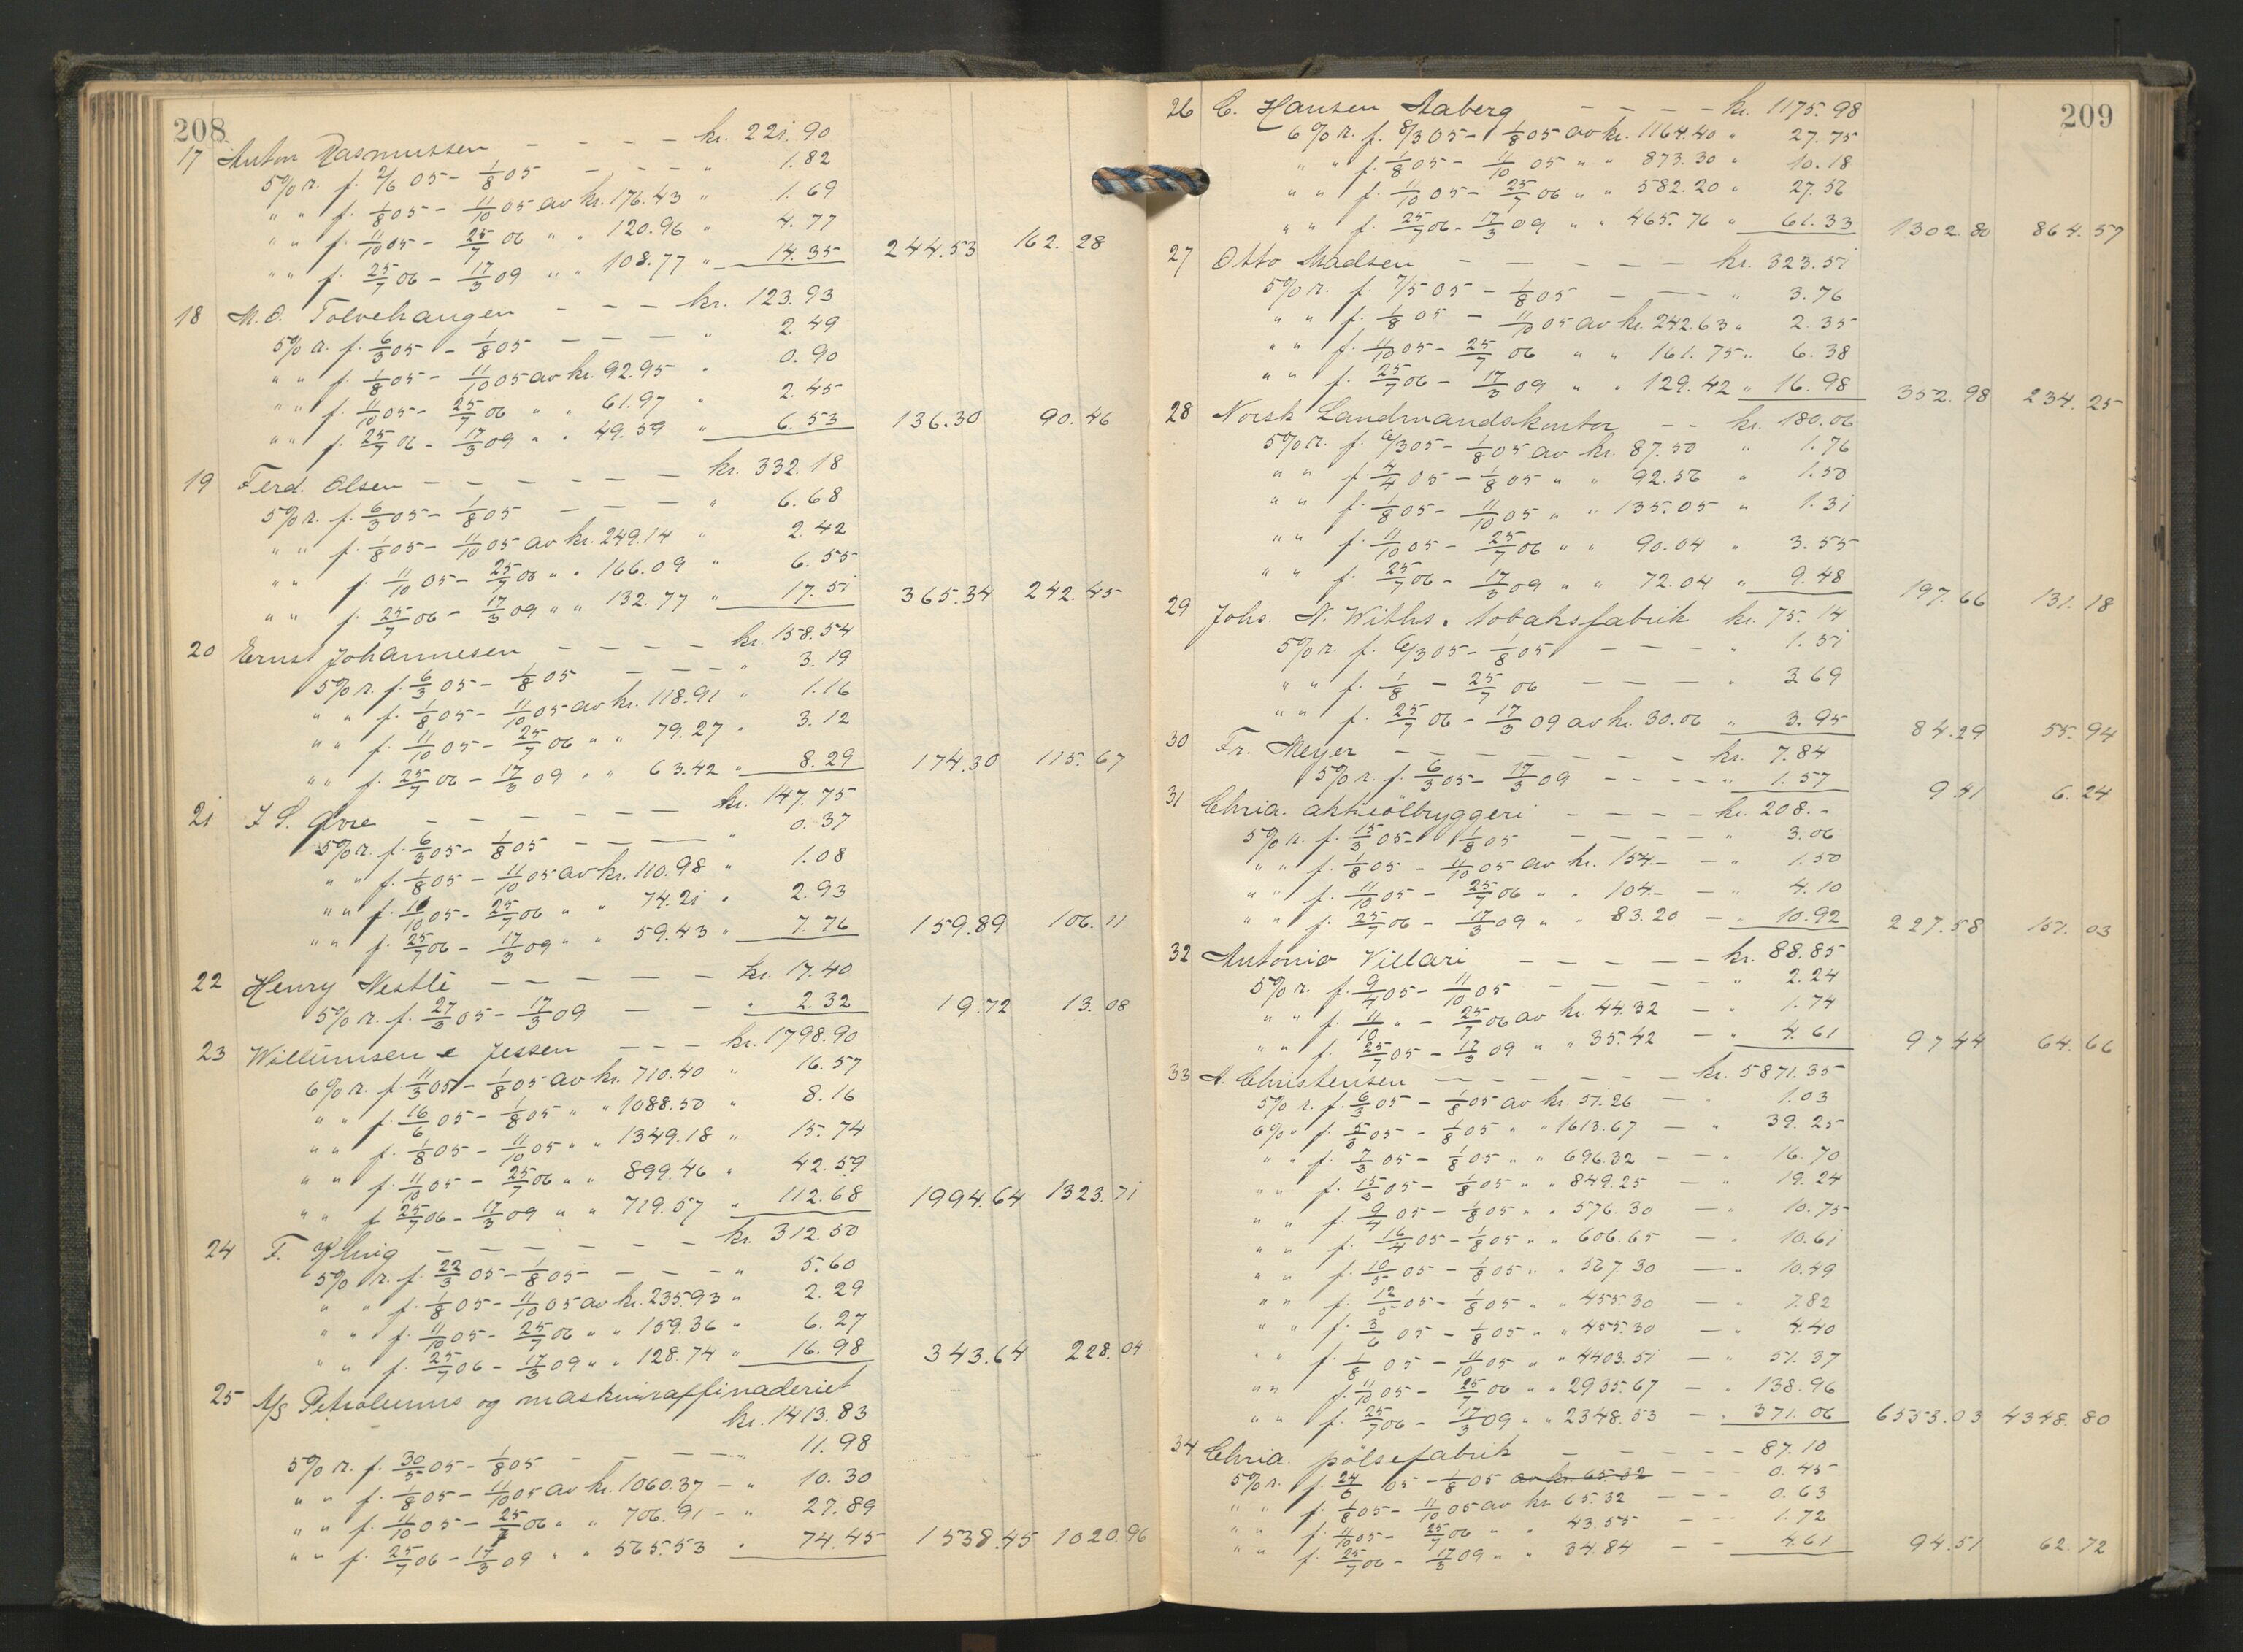 208
17 Anton Rasmussen - - - - kr. 221.90
5% r. f. 2/6 05 - 1/8 05 - - - " 1.82
" " f. 1/8 05 - 11/10 05 av kr. 176.43 " 1.69
" " f. 11/10 05 - 25/7 06 " " 120.96 " 4.77
" " f. 25/7 06 - 17/3 09 " " 108.77 " 14.35 244.53 162.28
18 M.O. Tolvehaugen - - - kr. 123.93
5% r. f. 6/3 05 - 1/8 05 - - - " 2.49
" " f. 1/8 05 - 11/10 05 av kr. 92.95 " 0.90
" " f. 11/10 05 - 25/7 06 " " 61.97 " 2.45
" " f. 25/7 06 - 17/3 09 " " 49.59 " 6.53 136.30 90.46
19 Ferd. Olsen - - - - - - kr. 332.18
5% r. f. 6/3 05 - 1/8 05 - - - " 6.68
" " f. 1/8 05 - 11/10 05 av kr. 249.14 " 2.42
" " f. 11/10 05 - 25/7 06 " " 166.09 " 6.55
" " f. 25/7 06 - 17/3 09 " " 132.77 " 17.51 365.34 242.45
20 Ernst Johannesen - - - - kr. 158.54
5% r. f. 6/3 05 - 1/8 05 - - - " 3.19
" " f. 1/8 05 - 11/10 05 av kr. 118.91 " 1.16
" " f. 11/10 05 - 25/7 06 " " 79.27 " 3.12
" " f. 25/7 06 - 17/3 09 " " 63.42 " 8.29 174.30 115.67
21 J. S. Øvre - - - - - - kr. 147.75
5% r. f. 6/3 05 - 1/8 05 - - - " 0.37
" " f. 1/8 05 - 11/10 05 av kr. 110.98 " 1.08
" " f. 11/10 05 - 25/7 06 " " 74.21 " 2.93
" " f. 25/7 06 - 17/3 09 " " 59.43 " 7.76 159.89 106.11
22 Henry Nestlé - - - - - kr. 17.40
5% r. f. 27/3 05 - 17/3 09 - - " 2.32 19.72 13.08
23 Willumsen & Jessen - - - kr. 1798.90
6% r. f. 11/3 05 - 1/8 05 av kr. 710.40 " 16.57
" " f. 16/6 05 - 1/8 05 " " 1088.50 " 8.16
" " f. 1/8 05 - 11/10 05 " " 1349.18 " 15.74
" " f. 11/10 05 - 25/7 06 " " 899.46 " 42.59
" " f. 25/7 06 - 17/3 09 " " 719.57 " 112.68 1994.64 1323.71
24 F. Kling - - - - - - kr. 312.50
5% r. f. 22/3 05 - 1/8 05 - - - " 5.60
" " f. 1/8 05 - 11/10 05 av kr. 235.93 " 2.29
" " f. 11/10 05 - 25/7 06 " " 159.36 " 6.27
" " f. 25/7 06 - 17/3 09 " " 128.74 " 16.98 343.64 228.04
25 A/S Petroleums og maskinraffinaderiet
kr. 1413.83
5% r. f. 30/5 05 - 1/8 05 - - - " 11.98
" " f. 1/8 05 - 11/10 05 av kr. 1060.37 - " 10.30
" " f. 11/10 05 - 25/7 06 " " 706.91 - " 27.89
" " f. 25/7 06 - 17/3 09 " " 565.53 " 74.45 1538.45 1020.96
209
26 C. Hansen Aaberg - - - - kr. 1175.98
6% r. f. 8/3 05 - 1/8 05 av kr. 1164.40 " 27.75
" " f. 1/8 05 - 11/10 05 " " 873.30 " 10.18
" " f. 11/10 05 - 25/7 06 " " 582.20 " 27.56
" " f. 25/7 06 - 17/3 09 " " 465.76 " 61.33 1302.80 864.57
27 Otto Madsen - - - - - kr. 323.51
5% r. f. 7/5 05 - 1/8 05 - - - " 3.76
" " f. 1/8 05 - 11/10 05 av kr. 242.63 " 2.35
" " f. 11/10 05 - 25/7 06 " " 161.75 " 6.38
" " f. 25/7 06 - 17/3 09 " " 129.42 " 16.98 352.98 234.25
28 Norsk Landmandskontor - - kr. 180.06
5% r. f. 6/3 05 - 1/8 05 av kr. 87.50 " 1.76
" " f. 4/4 05 - 1/8 05 " " 92.56 " 1.50
" " f. 1/8 05 - 11/10 05 " " 135.05 " 1.31
" " f. 11/10 05 - 25/7 06 " " 90.04 " 3.55
" " f. 25/7 06 - 17/3 09 " " 72.04 " 9.48 197.66 131.18
29 Johs. N. Withs. tobaksfabrik kr. 75.14
5% r. f. 6/3 05 - 1/8 05 - - - " 1.51
" " f. 1/8 - 25/7 06 - - - " 3.69
" " f. 25/7 06 - 17/3 09 av kr. 30.06 " 3.95 84.29 55.94
30 Fr. Meyer - - - - - - kr. 7.84
5% r. f. 6/3 05 - 17/3 09 - - - - " 1.57 9.41 6.24
31 Chria. aktieölbryggeri - - - - kr. 208.-
5% r. f. 15/3 05 - 1/8 05 - - - - " 3.06
" " f. 1/8 05 - 11/10 05 av kr. 154.- - " 1.50
" " f. 11/10 05 - 25/7 06 " " 104.- - " 4.10
" " f. 25/7 06 - 17/3 09 " " 83.20 - " 10.92 227.58 151.03
32 Antonio Villari - - - - - kr. 88.85
5% r. f. 9/4 05 - 11/10 05 - - - - " 2.24
" " f. 11/10 " - 25/7 06 av kr. 44.32 - " 1.74
" " f. 25/7 05 - 17/3 09 " " 35.42 - " 4.61 97.44 64.66
33 A. Christensen - - - - - - kr. 5871.35
5% r. f. 6/3 05 - 1/8 05 av kr. 51.26 - " 1.03
6% " f. 5/3 05 - 1/8 05 " " 1613.67 - " 39.25
" " f. 7/3 05 - 1/8 05 " " 696.32 - " 16.70
" " f. 15/3 05 - 1/8 05 " " 849.25 - " 19.24
" " f. 9/4 05 - 1/8 05 " " 576.30 - " 10.75
" " f. 16/4 05 - 1/8 05 " " 606.65 - " 10.61
" " f. 10/5 05 - 1/8 05 " " 567.30 - " 10.49
" " f. 12/5 05 - 1/8 05 " " 455.30 - " 7.82
" " f. 3/6 05 - 1/8 05 " " 455.30 - " 4.40
" " f. 1/8 05 - 11/10 05 " " 4403.51 - " 51.37
" " f. 11/10 05 - 25/7 06 " " 2935.67 - " 138.96
" " f. 25/7 06 - 17/3 09 " " 2348.53 - " 371.06 6553.03 4348.80
34 Chria. pölsefabrik - - - - - 87.10
5% r. f. 24/6 05 - 1/8 05 av kr. 65.32 - - - 0.45
" " f. 1/8 05 - 11/10 05 av kr. 65.32 - - - 0.63
" " f. 11/10 05 - 25/7 06 " " 43.55 - - - 1.72
" " f. 25/7 06 - 17/3 09 " " 34.84 - - 4.61 94.51 62.72